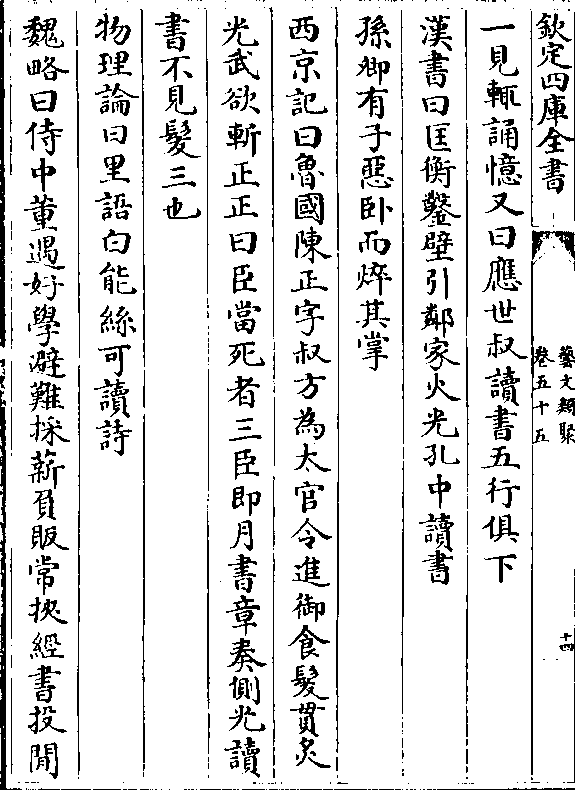 欽定四庫全書
藝文類聚
卷五十五
十四
一見輒誦憶又曰應世叔讀書五行俱下
漢書曰匡衡鑿壁引鄰家火光孔中讀書
孫卿有子惡卧而焠其掌
西京記曰魯國陳正字叔方為大官令進御食髮貫炙
光武欲斬正正曰臣當死者三臣即月書章奏側光讀
書不見髮三也
物理論曰里語白能絲可讀詩
魏略曰侍中董遇好學避難採薪負販常挾經書投閒